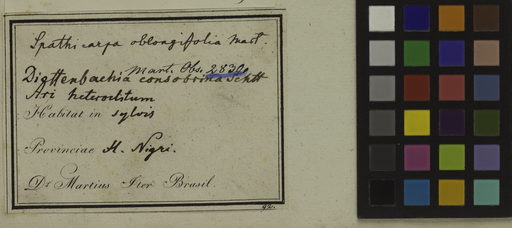 Spathicarpa oblongifolia Mart.
Mart. Obs. 2830.
Dieffenbachia consobrina Schtt
Ari heteroclitum
Habitat in sylvis
Provinciae H. Nigri.
Dr Martius Iter Brasil.